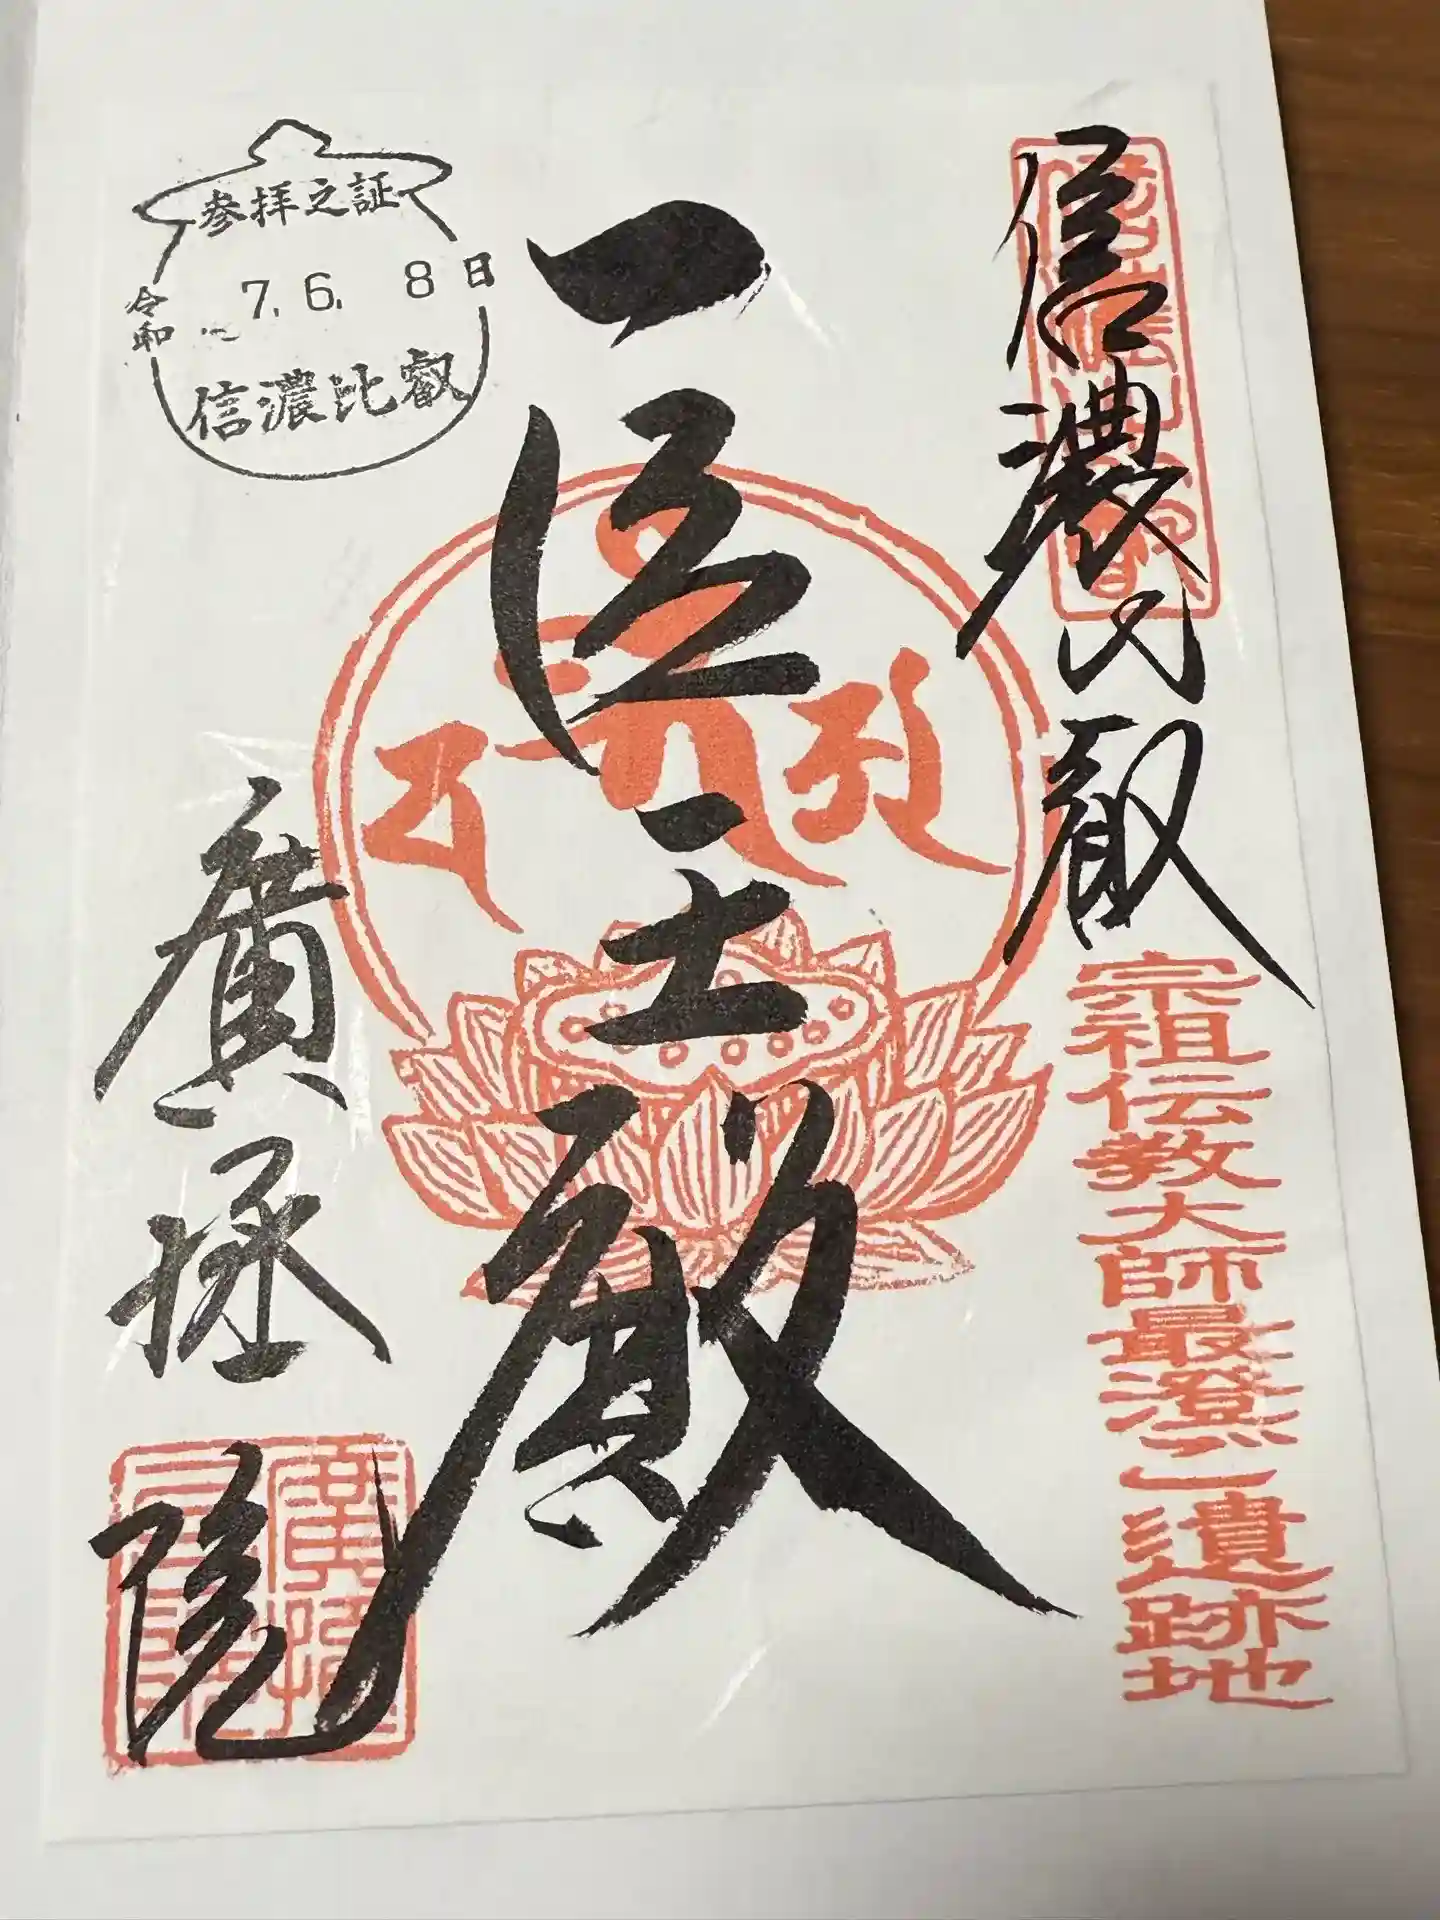 信濃比叡
宗祖伝教大師最澄ご遺跡地
医王殿
参拝之証
令和 7. 6. 8日
信濃比叡
廣拯院